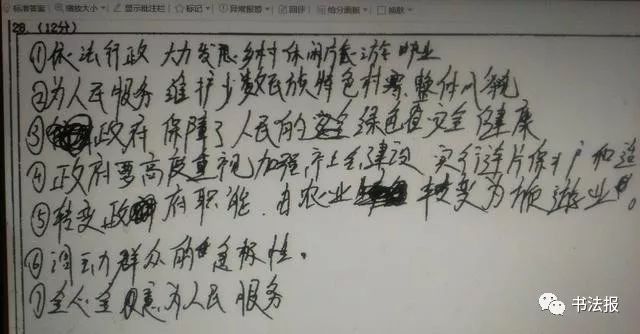 标准答案 缩放大小 显示批注栏 标记 异常报警 回评 给分画板 擦除
28. (12分)
①依法行政 大力发展乡村休闲旅游业
②为人民服务 维护少数民族特色村寨整体风貌
③政府 保障了人民的安全绿色食安全健康
④政府要高度重视加强 建设 实行连片保护和
⑤转变政府职能.由农业 转变为旅游业。
⑥调动群众的积极性。
⑦全心全意为人民服务
书法报